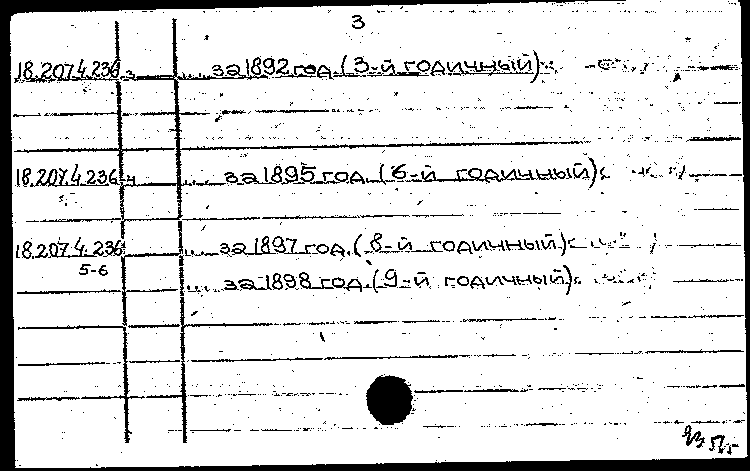 3
18.207.4.236 з ... за 1892 год. (3-й годичный)
18.207.4.236 ч ... за 1895 год. (6-й годичный)
18.207.4.236 ... за 1897 год. (8-й годичный)
5-6 ... за 1898 год. (9-й годичный)